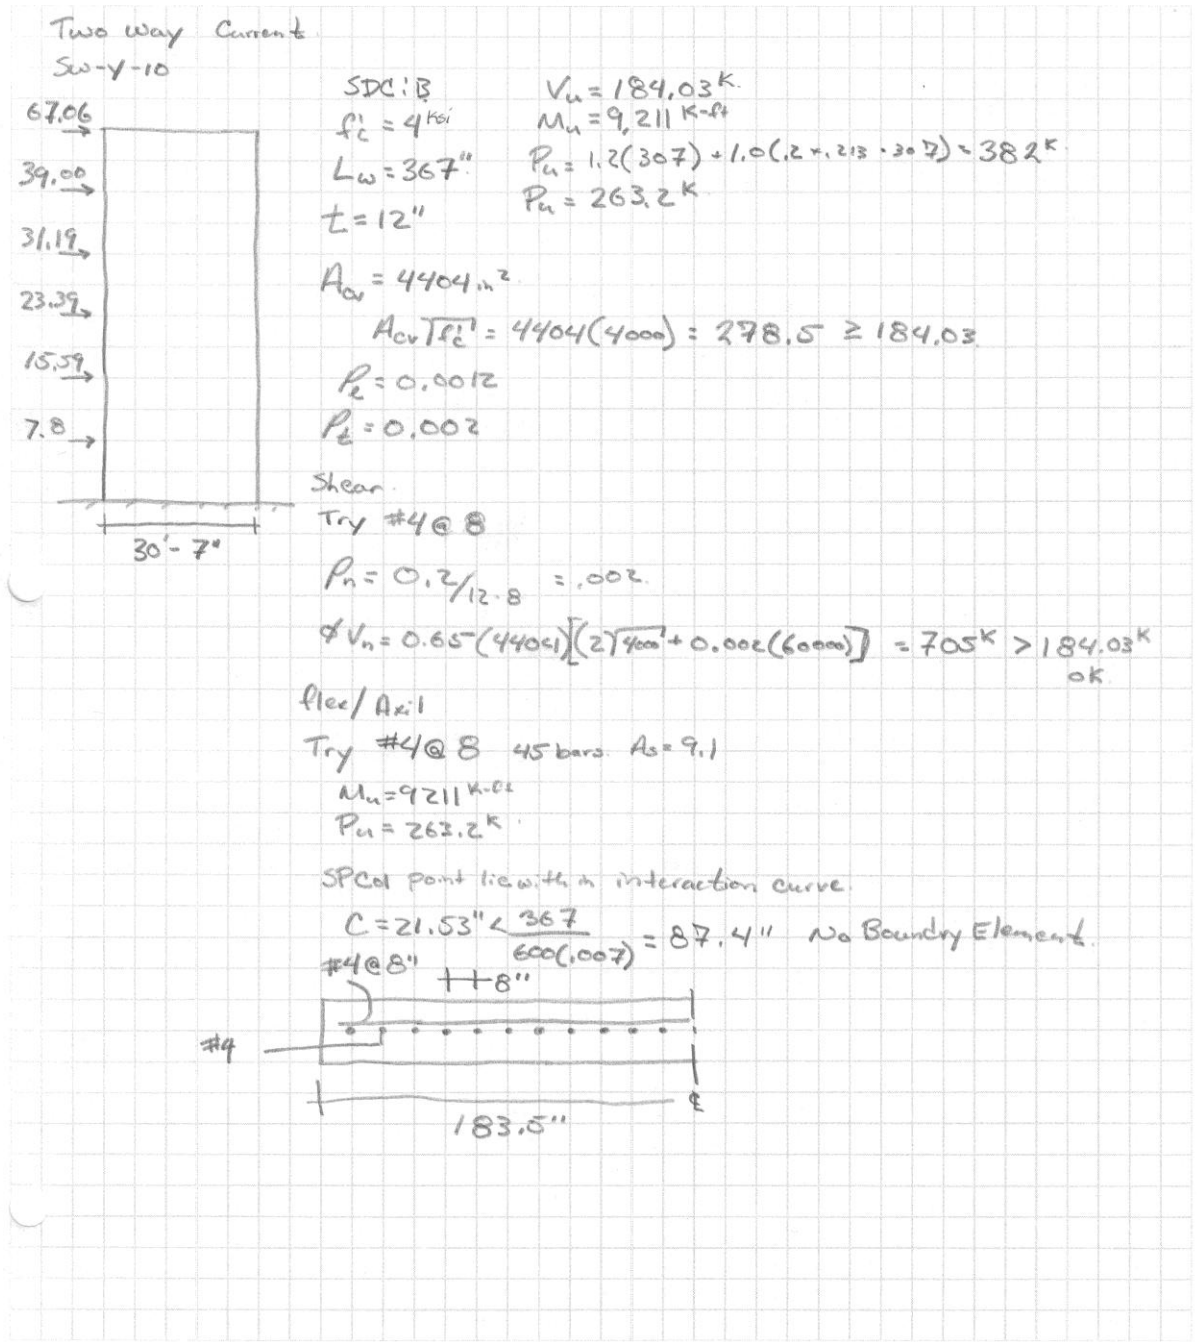 Two Way Current
SW-Y-10
67.06
39.00
31.19
23.39
15.59
7.8
30'-7"
SDC:B
f'c = 4 ksi
Lw = 367"
t = 12"
Vu = 184.03 K
Mu = 9,211 K-ft
Pu = 1.2(307) + 1.0(.2 × .213 · 307) = 382 K
Pu = 263.2 K
Acv = 4404 in²
Acv√f'c = 4404(4000) = 278.5 ≥ 184.03
ρℓ = 0.0012
ρt = 0.002
Shear
Try #4@8
ρn = 0.2/12·8 = .002
φVn = 0.65(4404)[(2√4000 + 0.002(60000)] = 705 K > 184.03 K
OK
flex/Axil
Try #4@8 45 bars As = 9.1
Mu = 9211 K-ft
Pu = 263.2 K
SPCol point lie with in interaction curve.
C = 21.53" < 367/600(.007) = 87.4" No Boundry Element.
#4@8"
8"
#4
℄
183.5"